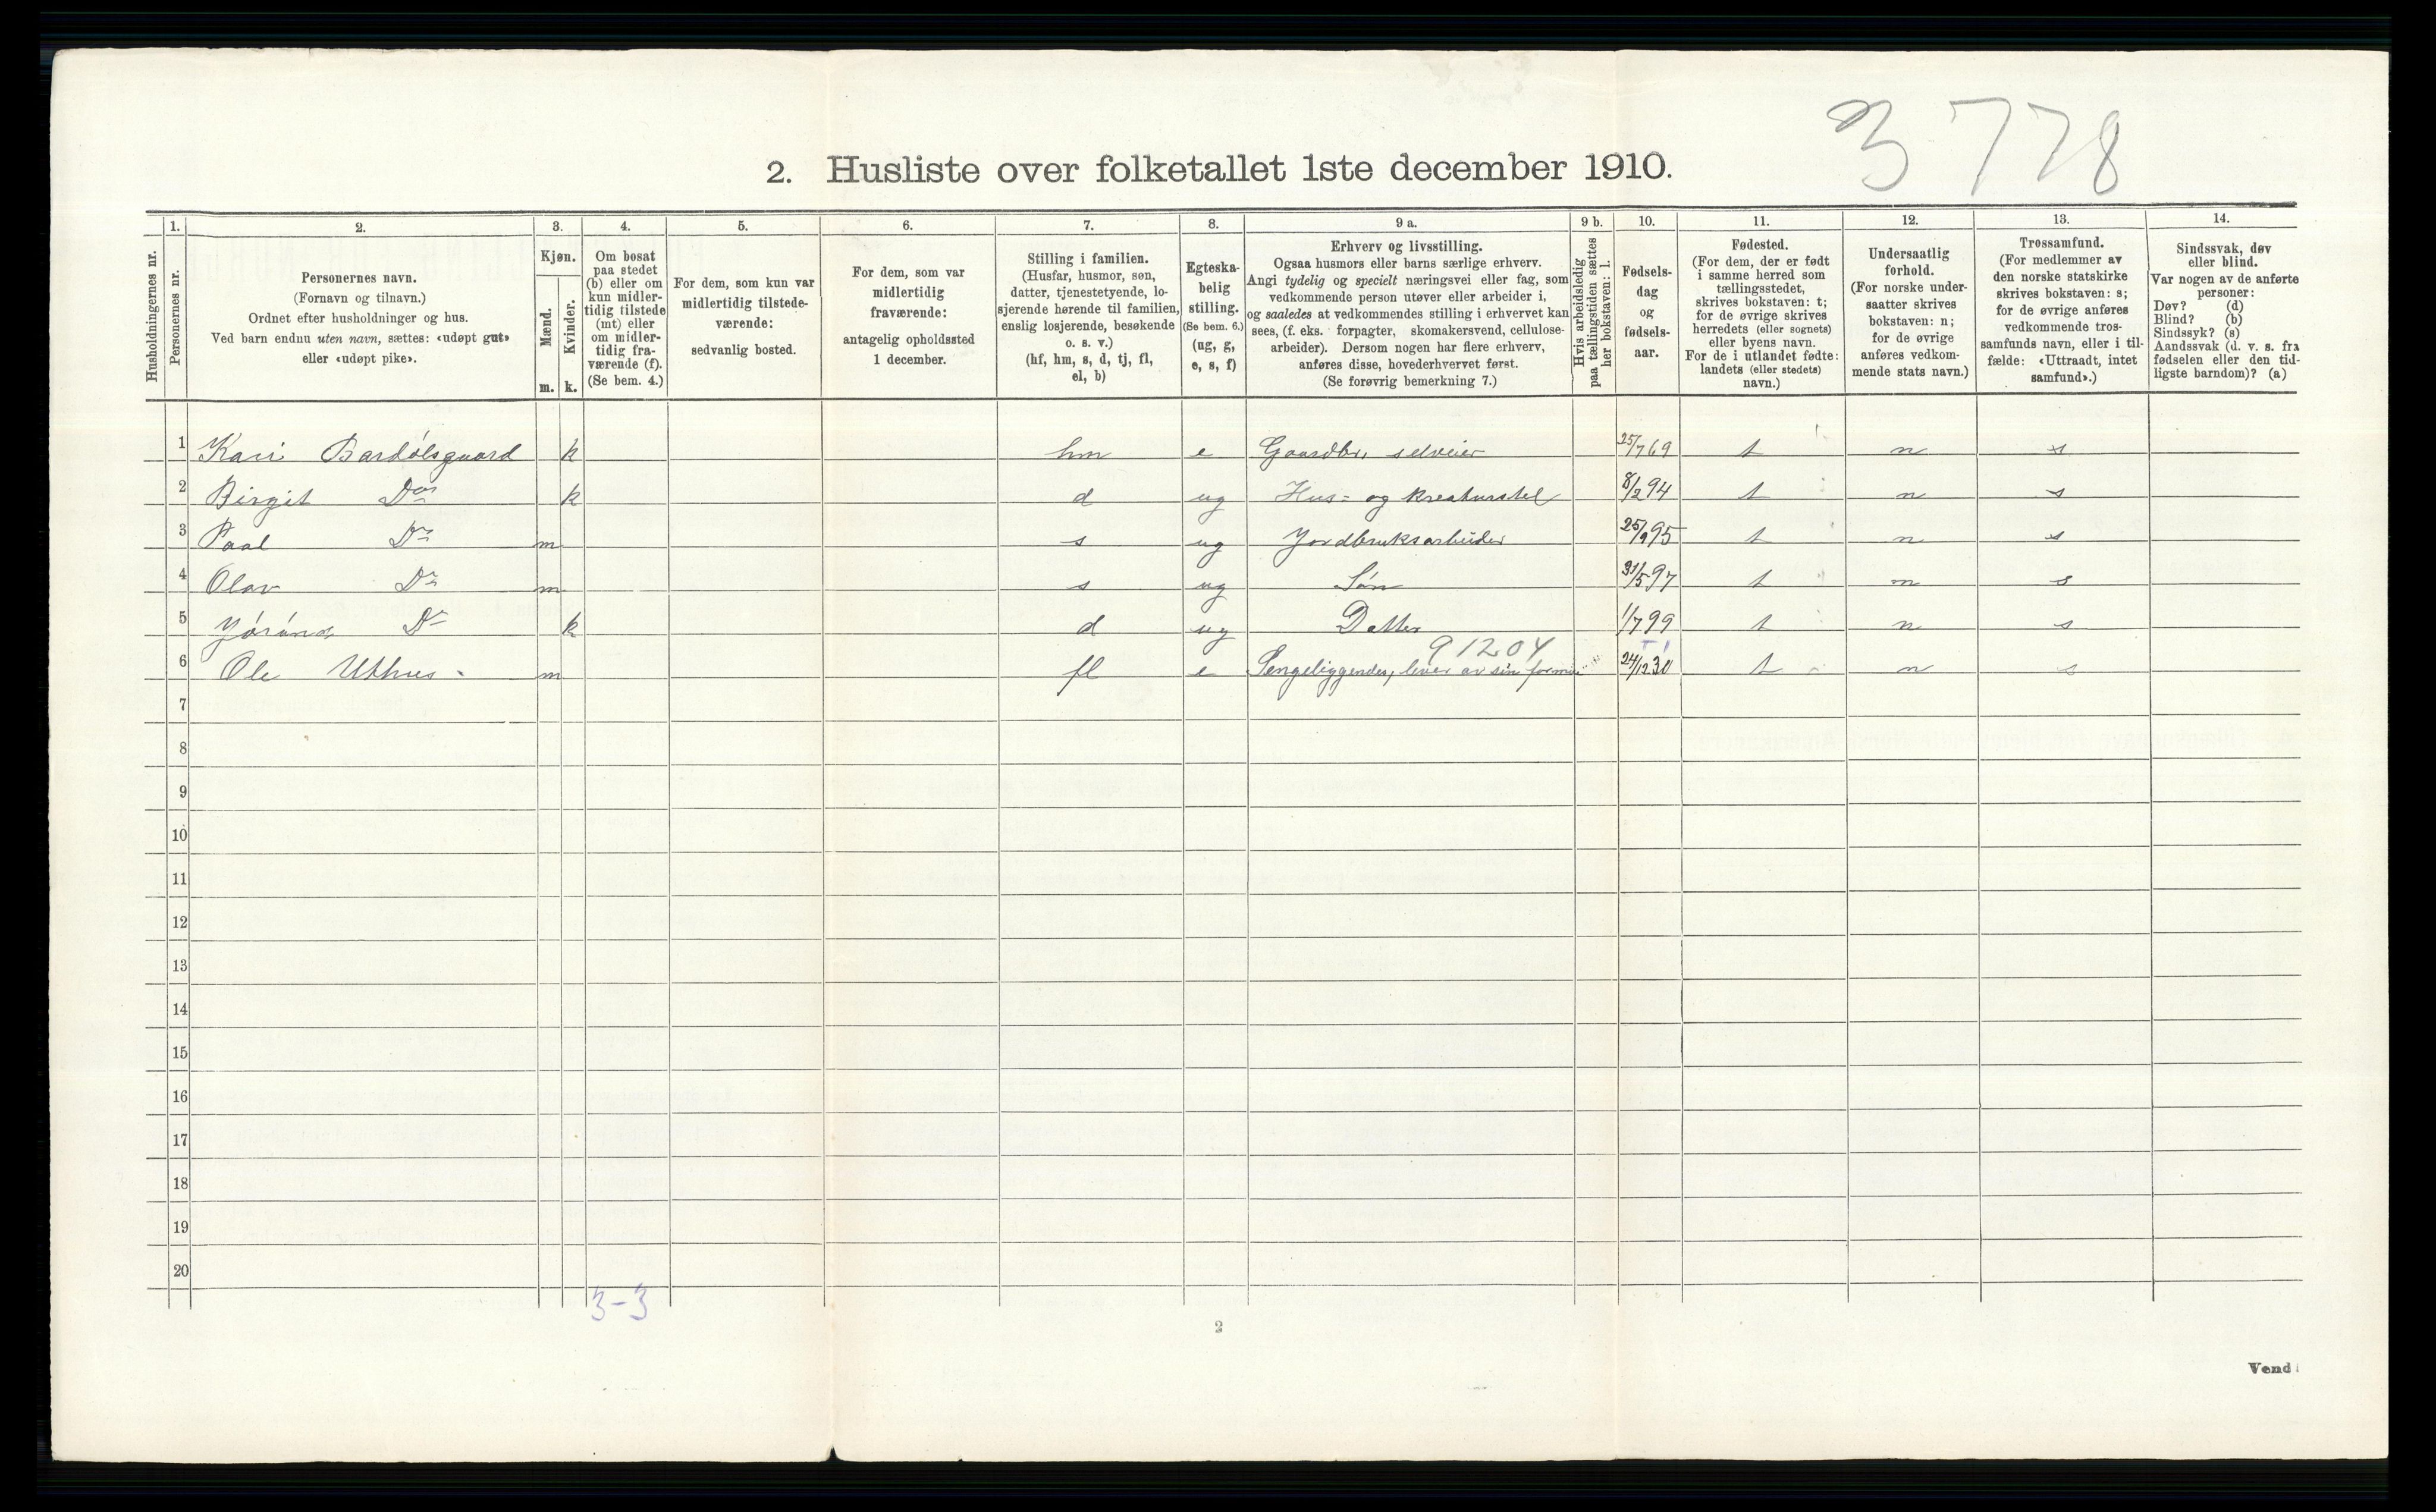 3 778
2. Husliste over folketallet 1ste december 1910.
1. 2. 3. 4. 5. 6. 7. 8. 9 a. 9 b. 10. 11. 12. 13. 14.
Husholdningernes nr.
Personernes nr.
Personernes navn.
(Fornavn og tilnavn.)
Ordnet efter husholdninger og hus.
Ved barn endnu uten navn, sættes: «udøpt gut»
eller «udøpt pike».
Kjøn.
Mænd.
Kvinder.
m. k.
Om bosat
paa stedet
(b) eller om
kun midler-
tidig tilstede
(mt) eller
om midler-
tidig fra-
værende (f).
(Se bem. 4.)
For dem, som kun var
midlertidig tilstede-
værende:
sedvanlig bosted.
For dem, som var
midlertidig
fraværende:
antagelig opholdssted
1 december.
Stilling i familien.
(Husfar, husmor, søn,
datter, tjenestetyende, lo-
sjerende hørende til familien,
enslig losjerende, besøkende
o. s. v.)
(hf, hm, s, d, tj, fl,
el, b)
Egteska-
belig
stilling.
(Se bem. 6.)
(ug, g,
e, s, f)
Erhverv og livsstilling.
Ogsaa husmors eller barns særlige erhverv.
Angi tydelig og specielt næringsvei eller fag, som
vedkommende person utøver eller arbeider i,
og saaledes at vedkommendes stilling i erhvervet kan
sees, (f. eks. forpagter, skomakersvend, cellulose-
arbeider). Dersom nogen har flere erhverv,
anføres disse, hovederhvervet først.
(Se forøvrig bemerkning 7.)
Hvis arbeidsledig
paa tællingstiden sættes
her bokstaven: l.
Fødsels-
dag
og
fødsels-
aar.
Fødested.
(For dem, der er født
i samme herred som
tællingsstedet,
skrives bokstaven: t;
for de øvrige skrives
herredets (eller sognets)
eller byens navn.
For de i utlandet fødte:
landets (eller stedets)
navn.)
Undersaatlig
forhold.
(For norske under-
saatter skrives
bokstaven: n;
for de øvrige
anføres vedkom-
mende stats navn.)
Trossamfund.
(For medlemmer av
den norske statskirke
skrives bokstaven: s;
for de øvrige anføres
vedkommende tros-
samfunds navn, eller i til-
fælde: «Uttraadt, intet
samfund».)
Sindssvak, døv
eller blind.
Var nogen av de anførte
personer:
Døv? (d)
Blind? (b)
Sindssyk? (s)
Aandssvak (d. v. s. fra
fødselen eller den tid-
ligste barndom)? (a)
1 Kari Bardölsgaard k hm e Gaardbr, selveier 25/7 69 t n s
2 Birgit Do k d ug Hus= og kreaturstel 8/2 94 t n s
3 Paal Do m s ug Jordbruksarbeider 25/9 95 t n s
4 Olav Do m s ug Sön 31/5 97 t n s
5 Jöránd Do k d ug Datter 1/7 99 t n s
91204
6 Ole Uthus m fl e Sengeliggendes, lever av sin formue 24/12 30 t n s
7
8
9
10
11
12
13
14
15
16
17
18
19
20
3-3
2
Vend